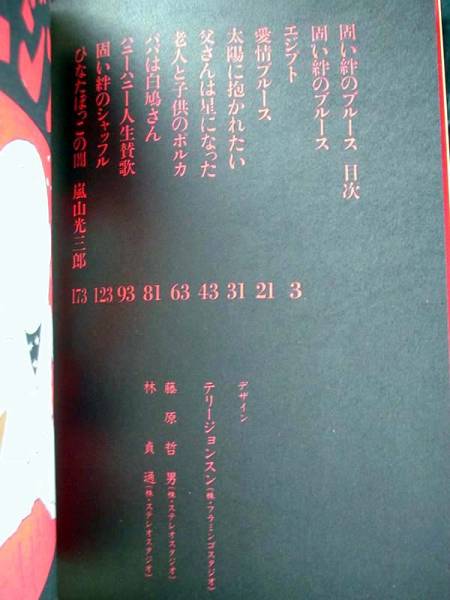 固い絆のブルース 目次
固い絆のブルース
エジプト 3
愛情ブルース 21
太陽に抱かれたい 31
父さんは星になった 43
老人と子供のポルカ 63
パパは白鳩さん 81
ハニーハニー人生賛歌 93
固い絆のシャッフル 123
ひなたぼっこの闇 嵐山光三郎 173
デザイン
テリージョンスン(株・フラミンゴスタジオ)
藤原哲男(株・ステレオスタジオ)
林貞通(株・ステレオスタジオ)